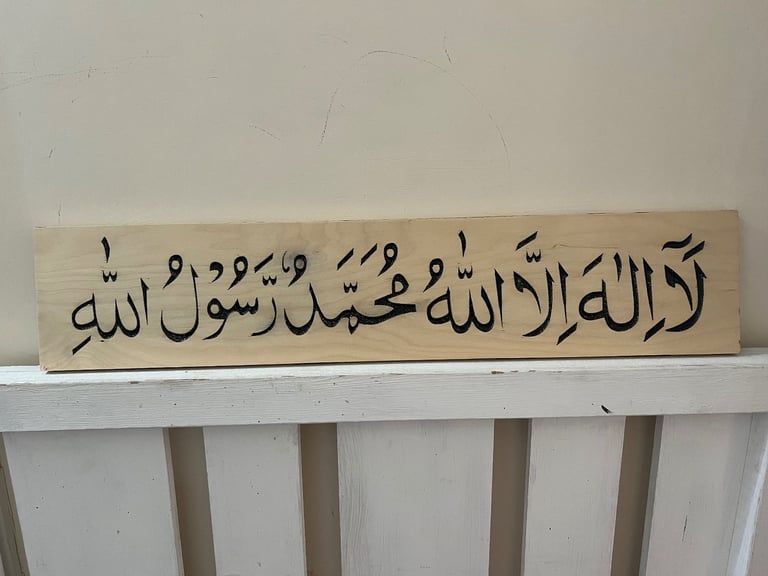 لَآ اِلٰهَ اِلَّا اللّٰهُ مُحَمَّدُ رَّسُوْلُ اللّٰهِ